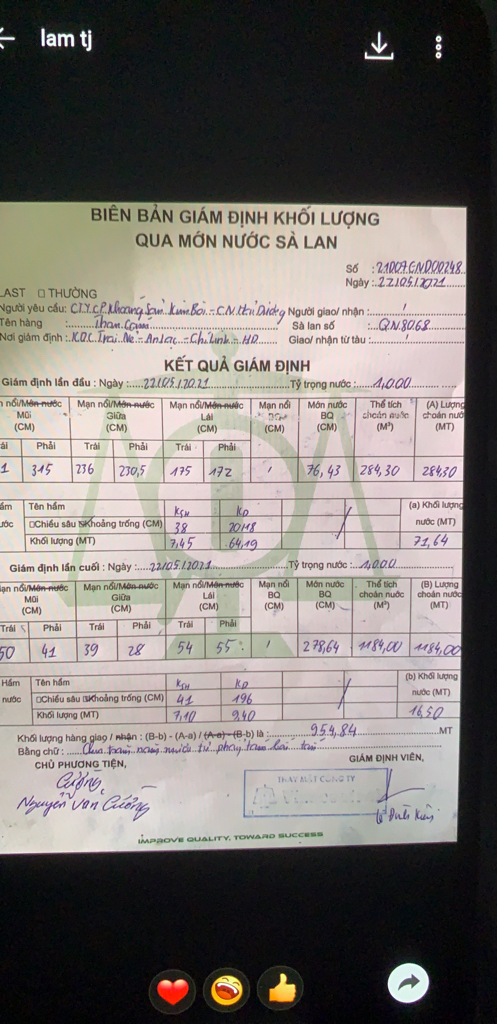 lam tj
BIÊN BẢN GIÁM ĐỊNH KHỐI LƯỢNG
QUA MỚN NƯỚC SÀ LAN
Số : 21D07.GND00248
Ngày : 22/05/2021
LAST □ THƯỜNG
Người yêu cầu: CTY.CP Khoáng Sản Kim Bôi - C.N Hải Dương Người giao/ nhận : /
Tên hàng : Than Cám Sà lan số : QN.8068
Nơi giám định : K.D.C. Trại Nẻ - An Lạc - Chí Linh - HD Giao/ nhận từ tàu : /
KẾT QUẢ GIÁM ĐỊNH
Giám định lần đầu : Ngày : 22/05/2021 Tỷ trọng nước : 1,000
n nổi/Mớn nước Mũi (CM) Mạn nổi/Mớn nước Giữa (CM) Mạn nổi/Mớn nước Lái (CM) Mạn nổi (CM) Mớn nước BQ (CM) Thể tích choán nước (M³) (A) Lượng choán nướ (MT)
ái Phải Trái Phải Trái Phải
1 315 236 230,5 175 172 / 76,43 284,30 284,30
ầm Tên hầm KSH KD (a) Khối lượng
ước □Chiều sâu Khoảng trống (CM) 38 nước (MT)
Khối lượng (MT) 7,45 64,19 71,64
Giám định lần cuối : Ngày : 22/05/2021 Tỷ trọng nước : 1,000
ạn nổi/Mớn nước Mũi (CM) Mạn nổi/Mớn nước Giữa (CM) Mạn nổi/Mớn nước Lái (CM) Mạn nổi BQ (CM) Mớn nước BQ (CM) Thể tích choán nước (M³) (B) Lượng choán nước (MT)
Trái Phải Trái Phải Trái Phải
50 41 39 28 54 55 / 278,64 1184,00 1184,00
Hầm Tên hầm KSH KD (b) Khối lượng
nước □Chiều sâu Khoảng trống (CM) 41 196 nước (MT)
Khối lượng (MT) 7,10 9,40 16,50
Khối lượng hàng giao / nhận : (B-b) - (A-a) / (A-a) - (B-b) là : 954,84 MT
Bằng chữ : trăm năm mươi tư phẩy tám
CHỦ PHƯƠNG TIỆN, GIÁM ĐỊNH VIÊN,
THAY MẶT CÔNG TY
Cường
Nguyễn Văn Cường
Đình Kiên
IMPROVE QUALITY, TOWARD SUCCESS